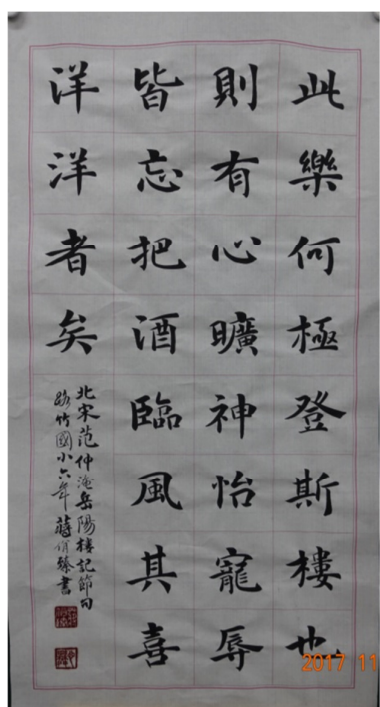 此樂何極登斯樓也
則有心曠神怡寵辱
皆忘把酒臨風其喜
洋洋者矣
北宋范仲淹岳陽樓記節句
竹國小六年蔣俏臻書
2017 11